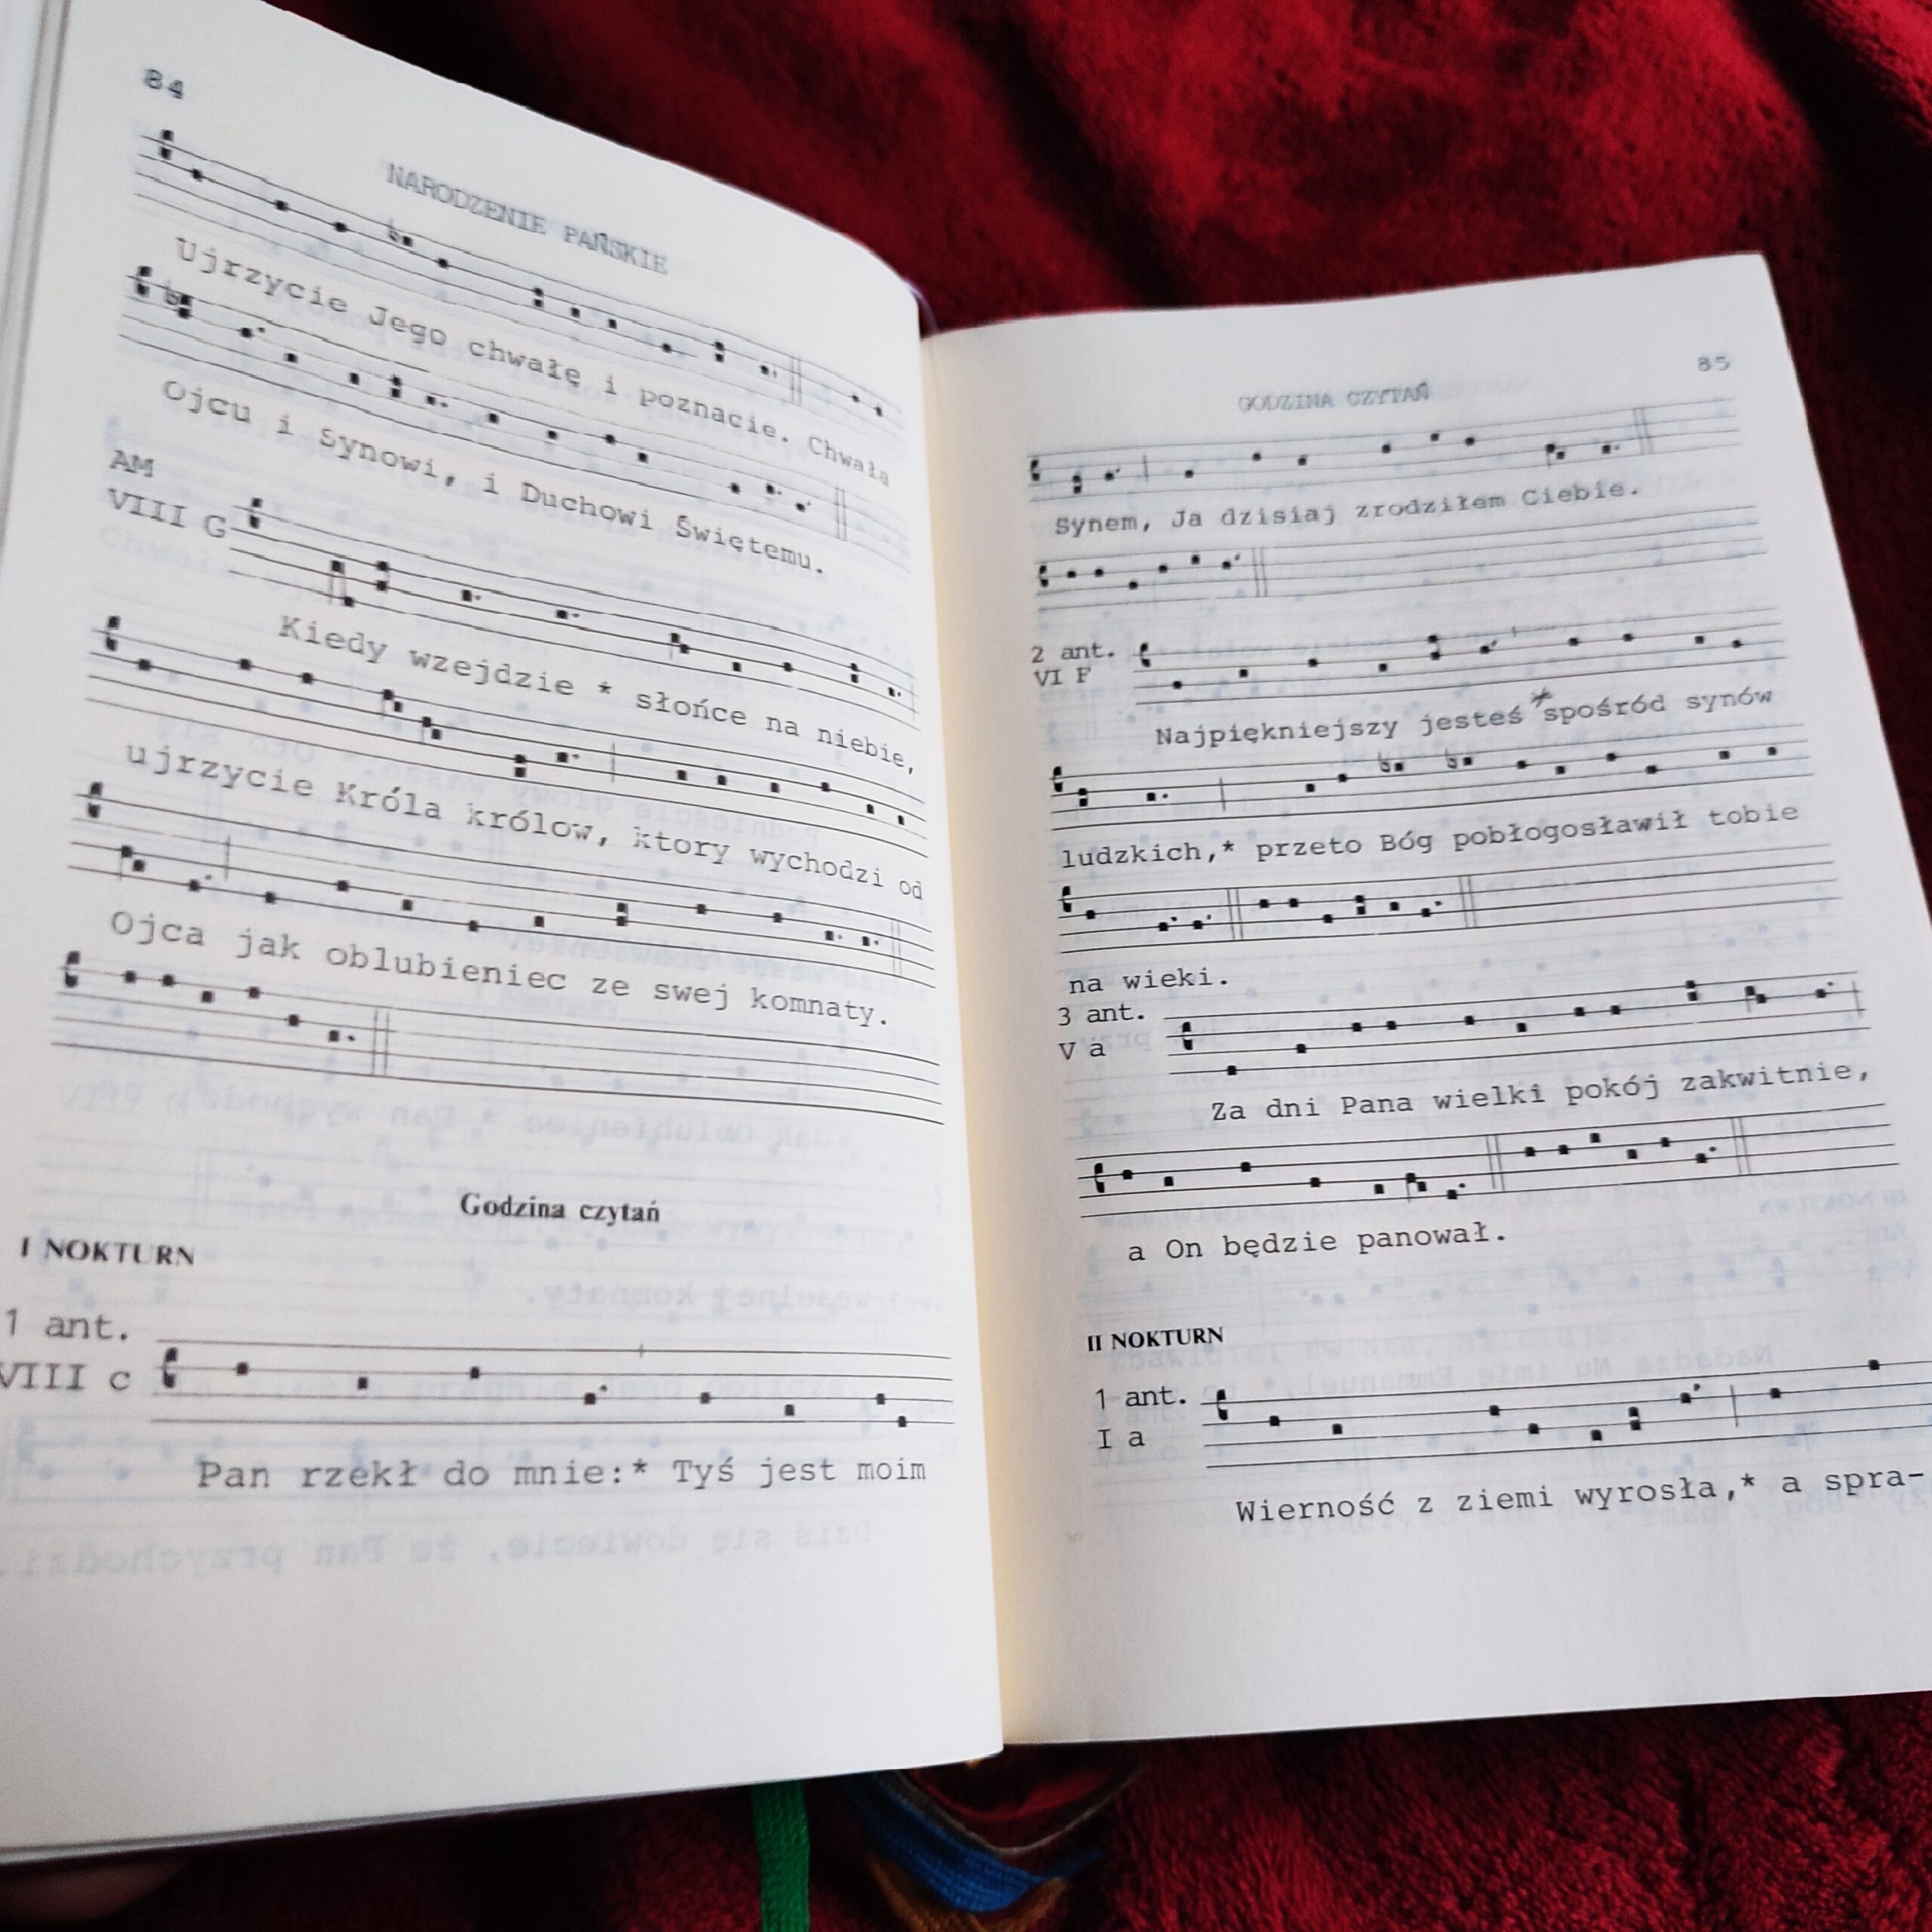 84
NARODZENIE PAŃSKIE
Ujrzycie Jego chwałę i poznacie. Chwała
Ojcu i Synowi, i Duchowi Świętemu.
AM
VIII G
Kiedy wzejdzie * słońce na niebie,
ujrzycie Króla królow, ktory wychodzi od
Ojca jak oblubieniec ze swej komnaty.
Godzina czytań
I NOKTURN
1 ant.
VIII c
Pan rzekł do mnie:* Tyś jest moim
85
GODZINA CZYTAŃ
Synem, Ja dzisiaj zrodziłem Ciebie.
2 ant.
VI F
Najpiękniejszy jesteś * spośród synów
ludzkich,* przeto Bóg pobłogosławił tobie
na wieki.
3 ant.
V a
Za dni Pana wielki pokój zakwitnie,
a On będzie panował.
II NOKTURN
1 ant.
I a
Wierność z ziemi wyrosła,* a spra-